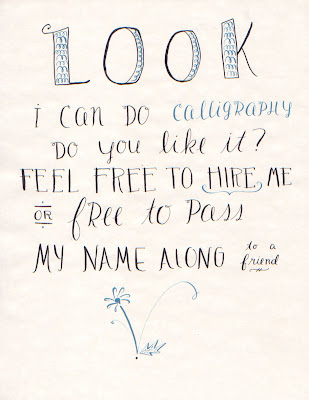 LOOK
i CAN DO CAlligRAPHY
DO YOU like it?
FEEL FREE TO HIRE ME
OR fREE to PASS
MY NAME AlONG to a friend